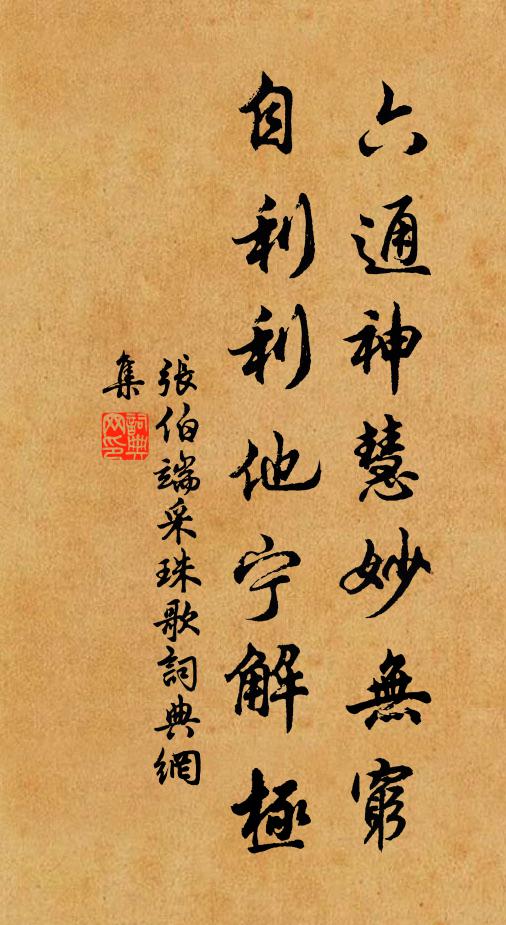 六通神慧妙無窮
自利利他宁解極
張伯端采珠歌詞典網
集
詞典
网印